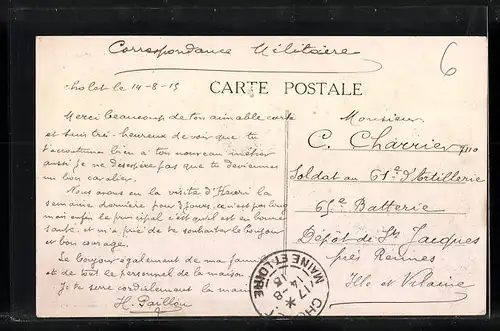 Correspondance Militaire
6
Cholet le 14-8-15
CARTE POSTALE
Merci beaucoup de ton aimable carte
et suis très heureux de voir que tu
t'accoutumes bien à ton nouveau métier
aussi je ne désespère pas que tu deviennes
un bon cavalier.
Nous avons eu la visite d'Henri la
semaine dernière pour 3 jours, ce n'est pas long
mais enfin le principal c'est qu'il est en bonne
santé et m'a prié de te souhaiter le bonjour
et bon courage.
Le bonjour également de ma famille
et de tout le personnel de la maison
Je te serre cordialement la main
H.
Monsieur
C. Charrier
Soldat au 61e d'Artillerie
65e Batterie
Dépôt de St Jacques
près Rennes
Ille et Vilaine
CHOLET
MAINE-ET-LOIRE
17 *
14 -8
15